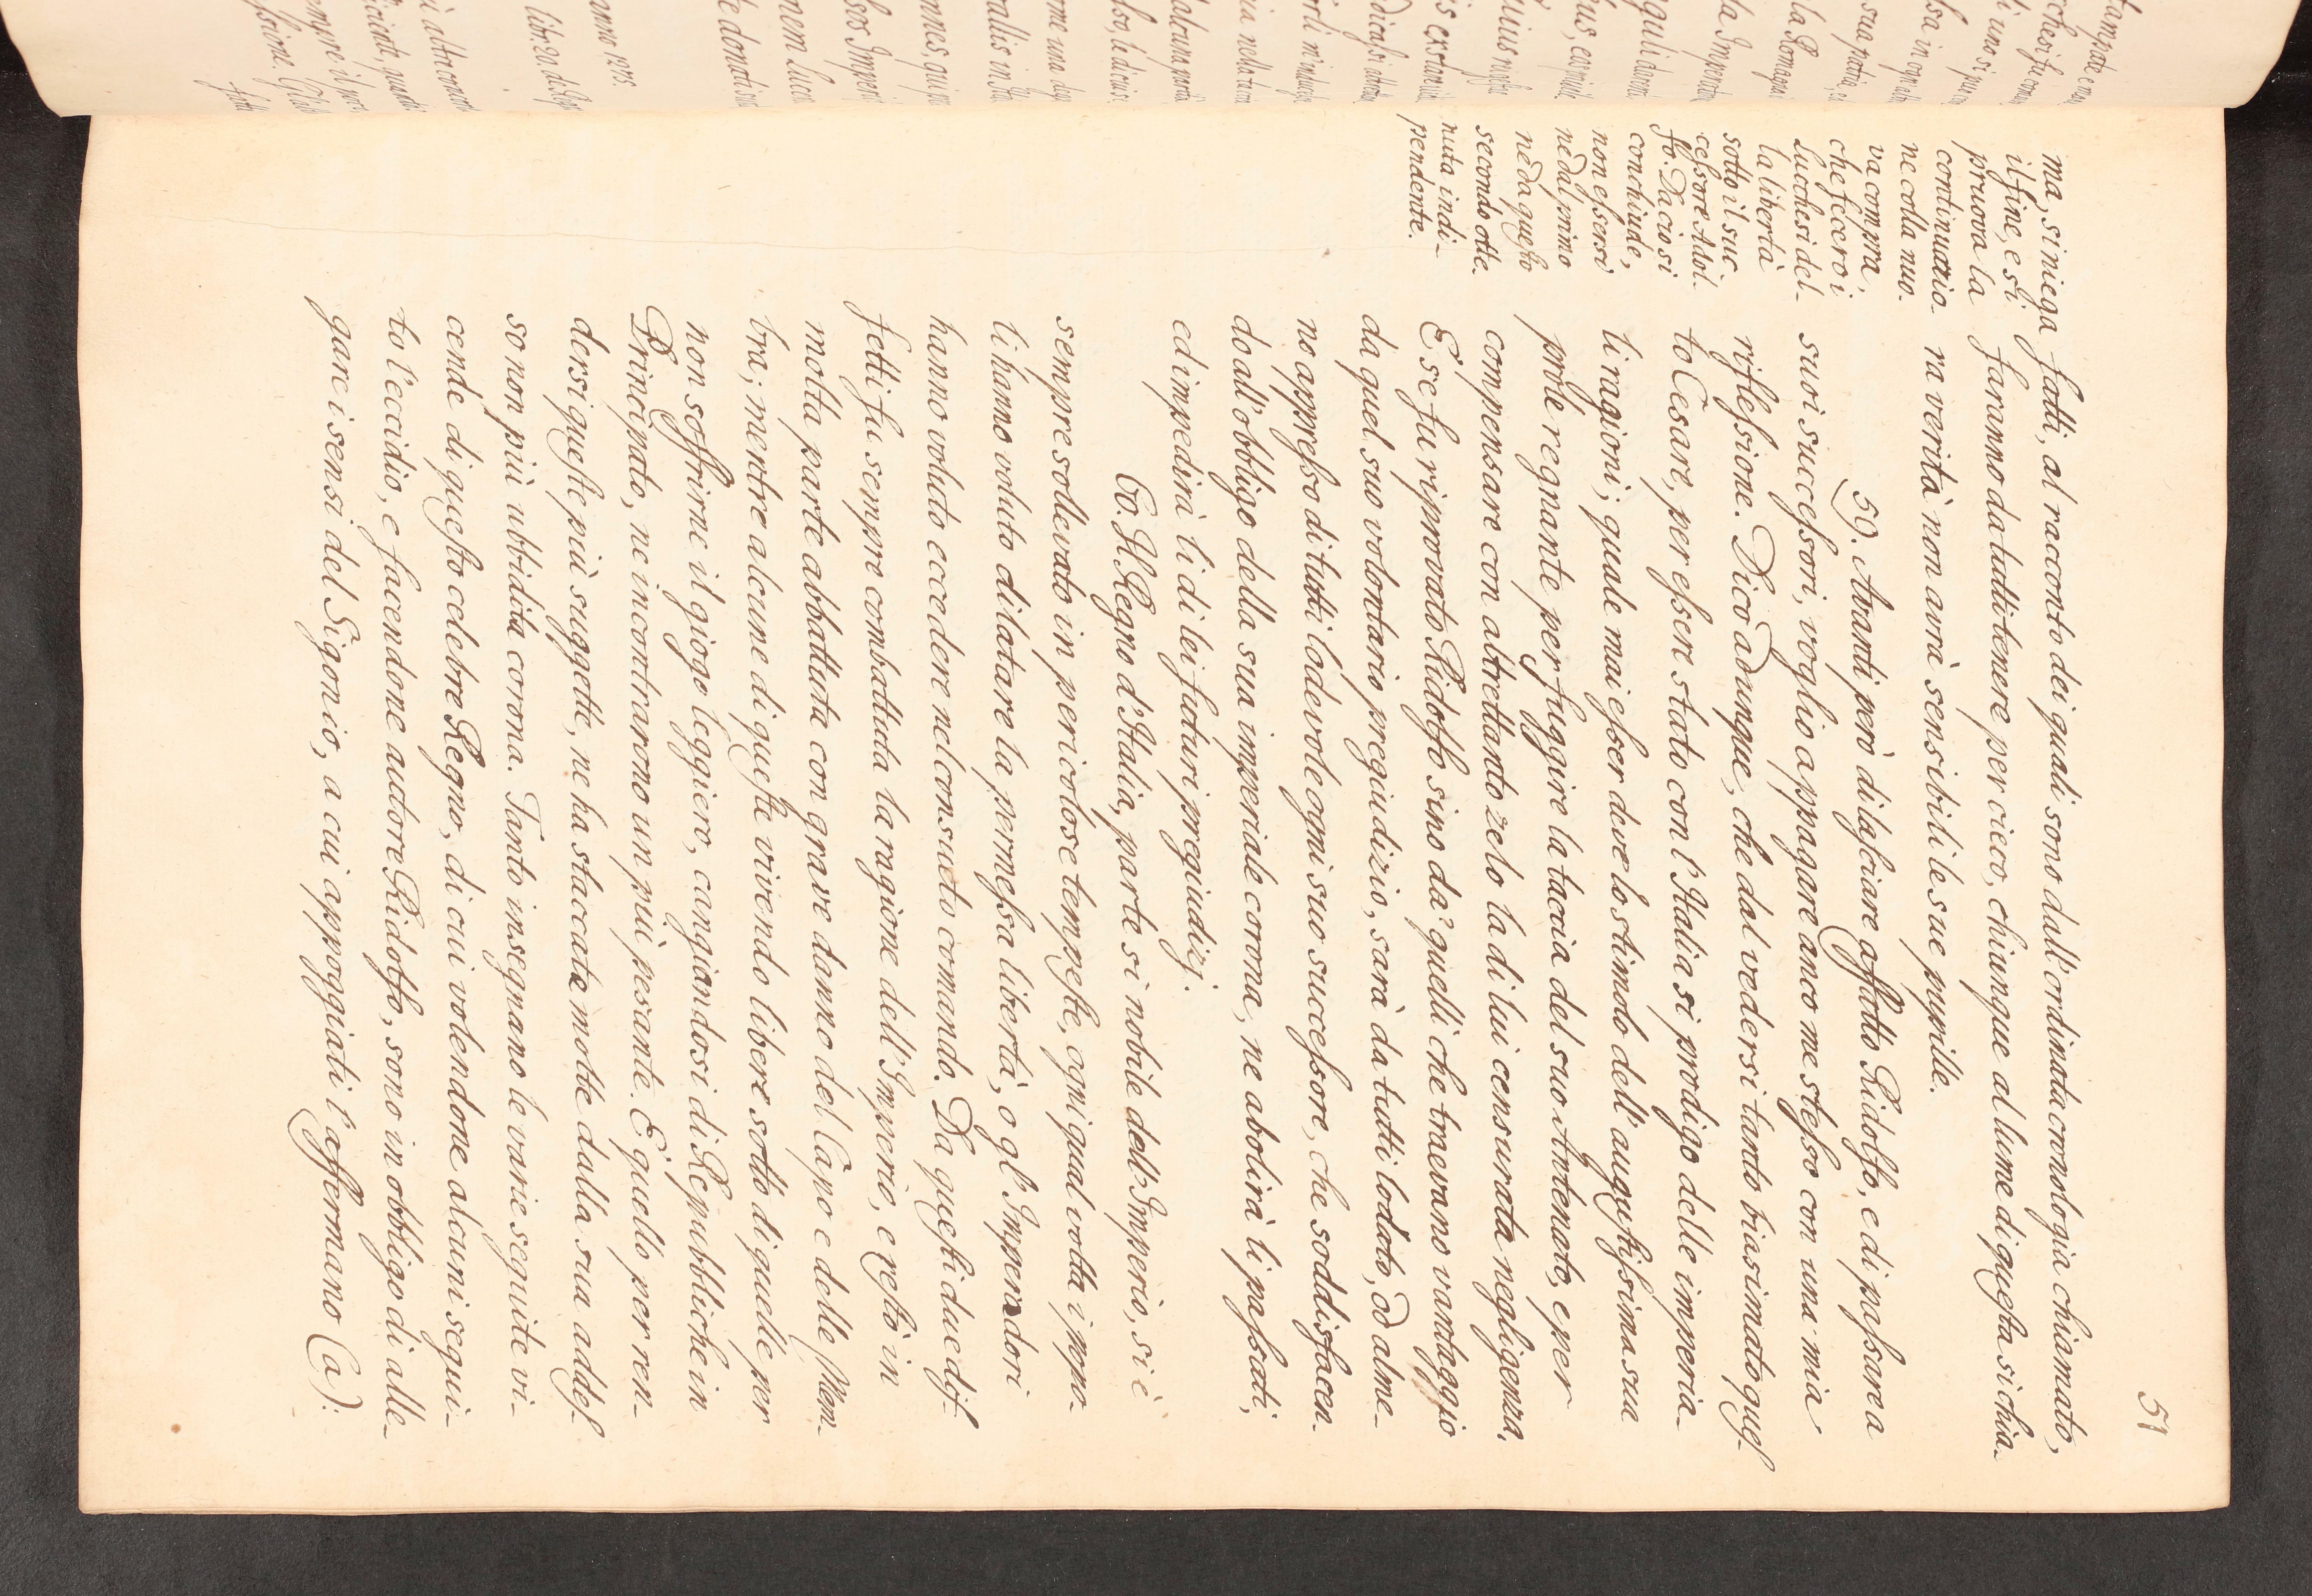 51
ma, si niega
il fine, e si
pruova la
continuazio-
ne colla nuo-
va compra,
che fecero i
Lucchesi del-
la libertà
sotto il suc
cessore Adol-
fo. Da ciò si
conchiude,
non essersi
nè dal primo
nè da questo
secondo otte-
nuta indi-
pendente.
fatti, al racconto dei quali sono dall'ordinata cronologia chiamato,
faranno da tutti tenere per cieco, chiunque al lume di questa si chia-
ra verità non avrà sensibili le sue pupille.
59. Avanti però di lasciare affatto Ridolfo, e di passare a
suoi successori, voglio appagare anco me stesso con una mia
riflessione. Dico adunque, che dal vedersi tanto biasimato ques-
to Cesare, per essere stato con l'Italia si prodigo delle imperia-
li ragioni; quale mai esser deve lo stimolo dell'augustissima sua
prole regnante per fuggire la taccia del suo Antenato, e per
compensare con altrettanto zelo la di lui censurata negligenza.
E se fu riprovato Ridolfo sino da' quelli che traevano vantaggio
da quel suo volontario pregiudizio, sarà da tutti lodato, od alme-
no appresso di tutti lodevole ogni suo successore, che soddisfacen-
do all'obbligo della sua imperiale corona, ne abolirà li passati,
ed impedirà li di lei futuri pregiudizj.
60. Il Regno d'Italia, parte si nobile dell'Imperio, si è
sempre sollevato in pericolose tempeste, ogni qual volta i ppo-
li hanno voluto dilatare la permessa libertà, o gl'Imperadori
hanno voluto eccedere nel consueto comando. Da questi due dif-
fetti fu sempre combattuda la ragione dell'Imperio, e restò in
molta parte abbattuta con grave danno del Capo e delle Mem-
bra; mentre alcune di queste vivendo libere sotto di quelle per
non soffrirne il giogo leggiero, cangiandosi di Repubbliche in
Principato, ne incontrarono un più pesante. E quello per ren-
dersi queste più suggette, ne ha staccate molte dalla sua addes-
so non più ubbidita corona. Tanto insegnano le varie seguite vi-
cende di questo celebre Regno, di cui volendone alcuni segui-
to l'eccidio, e facendone autore Ridolfo, sono in obbligo di alle-
gare i sensi del Sigonio, a cui appoggiati l'affermano (a):